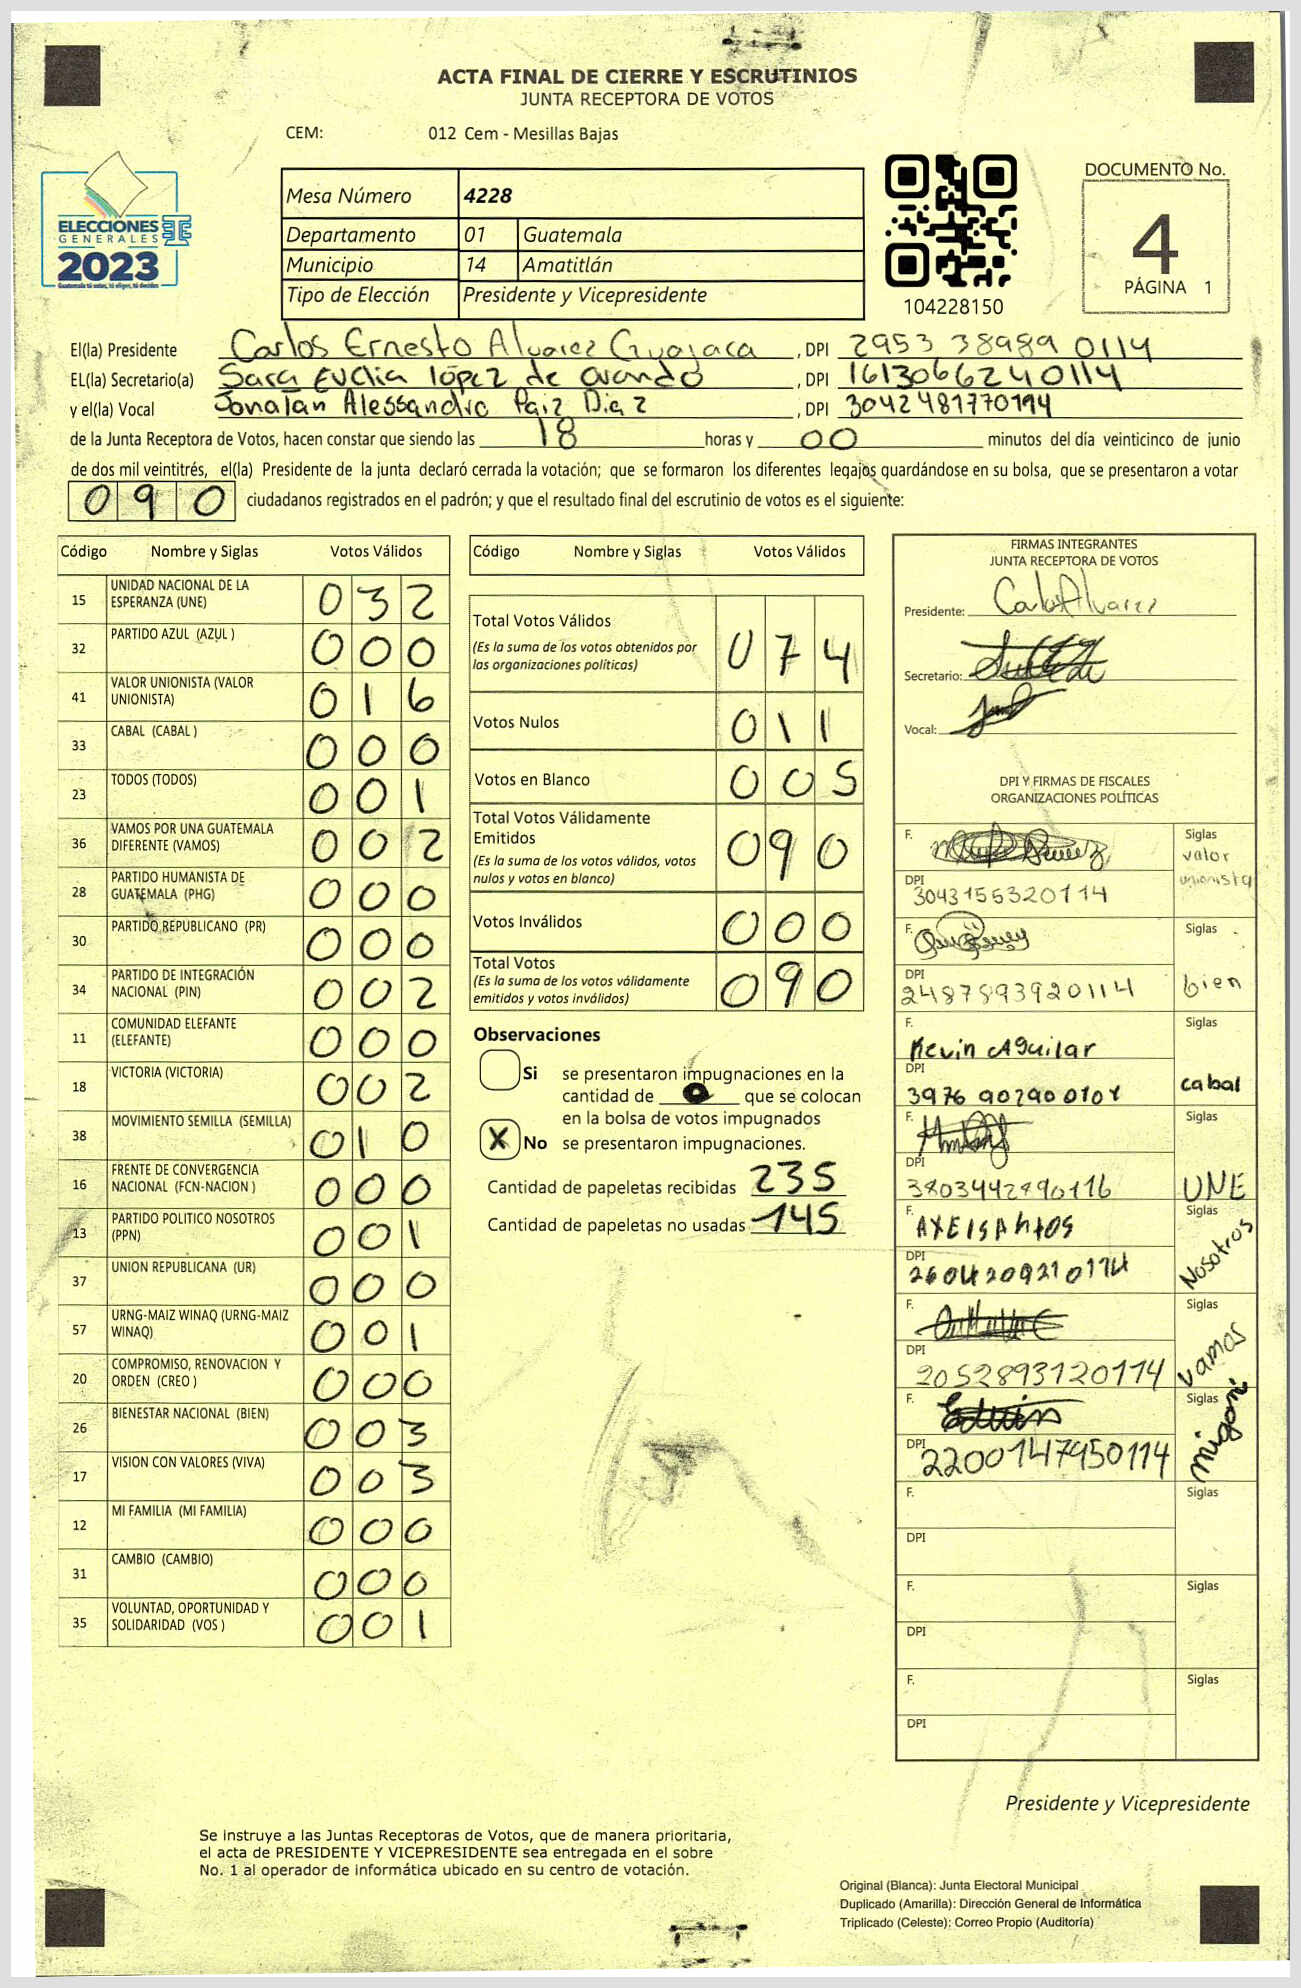 ACTA FINAL DE CIERRE Y ESCRUTINIOS
JUNTA RECEPTORA DE VOTOS
CEM: 012 Cem - Mesillas Bajas
ELECCIONES
GENERALES
2023
Mesa Número 4228
Departamento 01 Guatemala
Municipio 14 Amatitlán
Tipo de Elección Presidente y Vicepresidente
104228150
DOCUMENTO No.
4
PÁGINA 1
El(la) Presidente Carlos Ernesto Alvarez , DPI 2953 38989 0114
EL(la) Secretario(a) Sara Evelia lópez de ovando , DPI 1613066240114
y el(la) Vocal Jonatan Alessandro Paiz Diaz , DPI 3042481770114
de la Junta Receptora de Votos, hacen constar que siendo las 18 horas y 00 minutos del día veinticinco de junio
de dos mil veintitrés, el(la) Presidente de la junta declaró cerrada la votación; que se formaron los diferentes legajos guardándose en su bolsa, que se presentaron a votar
090 ciudadanos registrados en el padrón; y que el resultado final del escrutinio de votos es el siguiente:
Código Nombre y Siglas Votos Válidos
15 UNIDAD NACIONAL DE LA ESPERANZA (UNE) 032
32 PARTIDO AZUL (AZUL ) 000
41 VALOR UNIONISTA (VALOR UNIONISTA) 016
33 CABAL (CABAL ) 000
23 TODOS (TODOS) 001
36 VAMOS POR UNA GUATEMALA DIFERENTE (VAMOS) 002
28 PARTIDO HUMANISTA DE GUATEMALA (PHG) 000
30 PARTIDO REPUBLICANO (PR) 000
34 PARTIDO DE INTEGRACIÓN NACIONAL (PIN) 002
11 COMUNIDAD ELEFANTE (ELEFANTE) 000
18 VICTORIA (VICTORIA) 002
38 MOVIMIENTO SEMILLA (SEMILLA) 010
16 FRENTE DE CONVERGENCIA NACIONAL (FCN-NACION ) 000
13 PARTIDO POLITICO NOSOTROS (PPN) 001
37 UNION REPUBLICANA (UR) 000
57 URNG-MAIZ WINAQ (URNG-MAIZ WINAQ) 001
20 COMPROMISO, RENOVACION Y ORDEN (CREO ) 000
26 BIENESTAR NACIONAL (BIEN) 003
17 VISION CON VALORES (VIVA) 003
12 MI FAMILIA (MI FAMILIA) 000
31 CAMBIO (CAMBIO) 000
35 VOLUNTAD, OPORTUNIDAD Y SOLIDARIDAD (VOS ) 001
Código Nombre y Siglas Votos Válidos
Total Votos Válidos 074
(Es la suma de los votos obtenidos por
las organizaciones políticas)
Votos Nulos 011
Votos en Blanco 005
Total Votos Válidamente
Emitidos 090
(Es la suma de los votos válidos, votos
nulos y votos en blanco)
Votos Inválidos 000
Total Votos 090
(Es la suma de los votos válidamente
emitidos y votos inválidos)
Observaciones
Si se presentaron impugnaciones en la
cantidad de 0 que se colocan
en la bolsa de votos impugnados
X No se presentaron impugnaciones.
Cantidad de papeletas recibidas 235
Cantidad de papeletas no usadas 145
FIRMAS INTEGRANTES
JUNTA RECEPTORA DE VOTOS
Presidente: Carlos Alvarez
Secretario:
Vocal:
DPI Y FIRMAS DE FISCALES
ORGANIZACIONES POLÍTICAS
F. Siglas valor unionista
DPI 3043155320114
F. Siglas bien
DPI 2487893920114
F. Kevin Aguilar Siglas cabal
DPI 3976 902900101
F. Siglas UNE
DPI 3803442890116
F. Siglas Nosotros
DPI 2604209210114
F. Siglas vamos
DPI 2052893120114
F. Edwin Siglas
DPI 2200147950114
F. Siglas
DPI
F. Siglas
DPI
F. Siglas
DPI
Presidente y Vicepresidente
Se instruye a las Juntas Receptoras de Votos, que de manera prioritaria,
el acta de PRESIDENTE Y VICEPRESIDENTE sea entregada en el sobre
No. 1 al operador de informática ubicado en su centro de votación.
Original (Blanca): Junta Electoral Municipal
Duplicado (Amarilla): Dirección General de Informática
Triplicado (Celeste): Correo Propio (Auditoría)